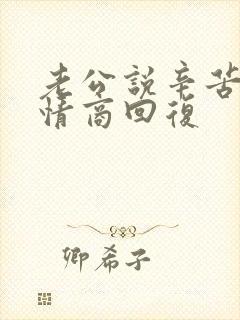 老公說辛苦
情商回復
卿希子